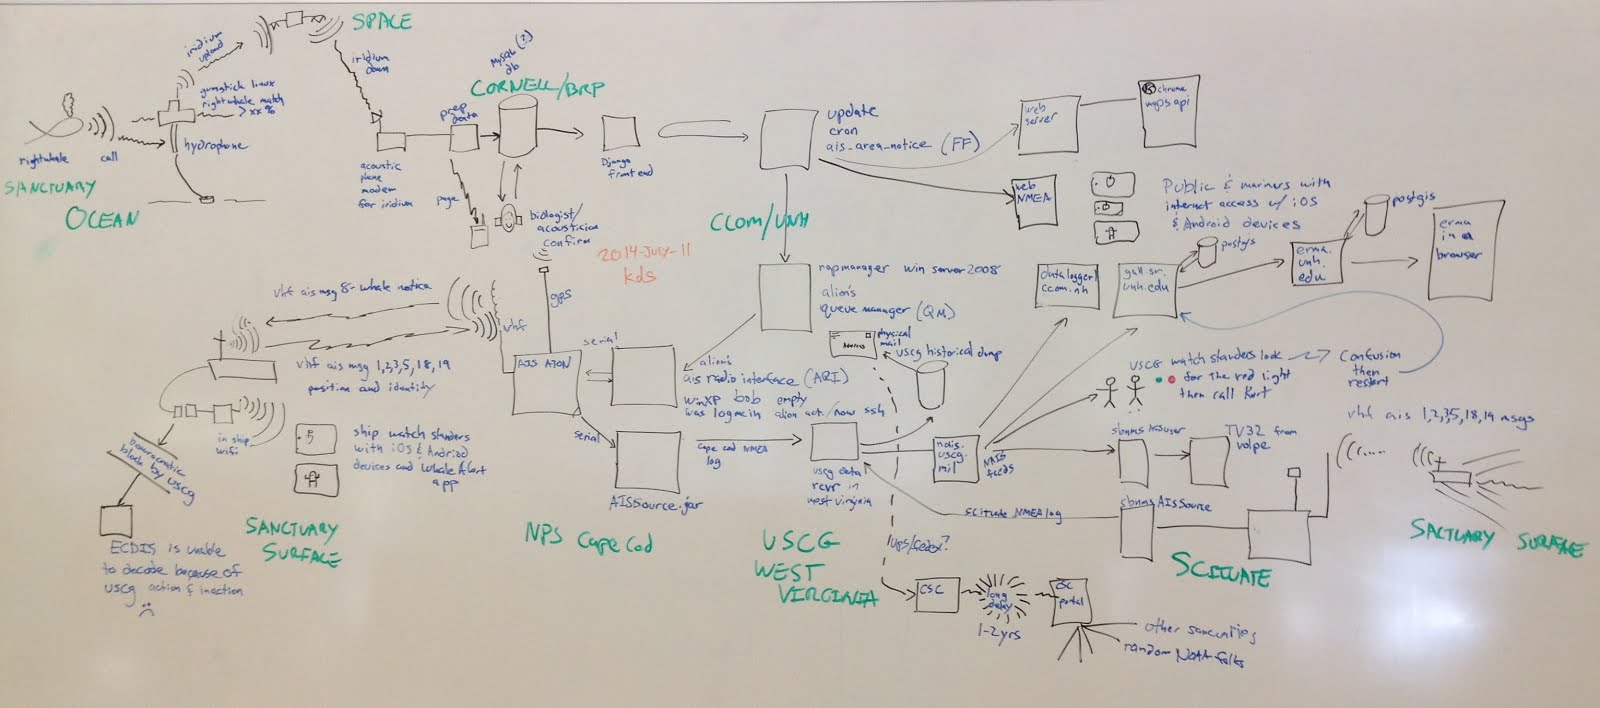 SPACE
iridium
upload
iridium
down
MySQL (?)
db
CORNELL/BRP
gumstick linux
right whale match
> xx %
right whale call
hydrophone
SANCTUARY
OCEAN
prep
data
acoustic
phone
modem
for iridium
page
biologist/
acoustician
confirm
Django
frontend
2014-JULY-11
kds
CCOM/UNH
update
cron
ais_area_notice (FF)
web
server
chrome
maps api
web
NMEA
Public & mariners with
internet access w/ iOS
& Android devices
postgis
postgis
erma.
unh.
edu
erma
in a
browser
datalogger1
ccom.nh
unh.edu
mapmanager win server 2008
alion's
queue manager (QM)
vhf ais msg 8- whale notice
vhf ais msg 1,2,3,5,18,19
position and identity
vhf
gps
AIS ATON
serial
serial
alion's
ais radio interface (ARI)
WinXP bob empty
was logmein alion act./now ssh
AISSource.jar
cape cod NMEA
log
NPS Cape Cod
in ship
wifi
ship watch standers
with iOS & Android
devices and Whale Alert
app
beaurocratic
block by uscg
ECDIS is unable
to decode because of
uscg action & inaction
SANCTUARY
SURFACE
physical
mail
uscg historical dump
uscg data
recvr in
west virginia
ndis.
uscg.
mil
NAIS
feeds
USCG
WEST
VIRGINIA
ups/fedex?
CSC
long
delay
1-2yrs
CSC
portal
other sancuaries
random NOAA folks
USCG watch standers look
for the red light
then call Kurt
Confusion
then
restart
sbnms AISuser
TV32 from
volpe
sbnms AISSource
scituate NMEA log
SCITUATE
vhf ais 1,2,3,5,18,19 msgs
SACTUARY SURFACE